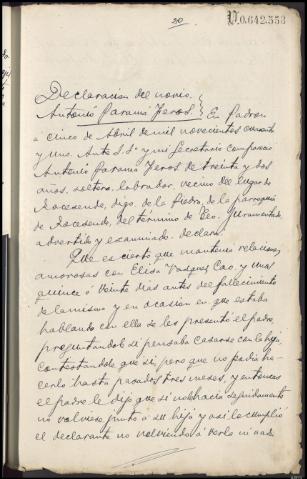 20
V.0.642,553
Declaracion del novio.
Antonio Paramá Feros. } En Padron
á cinco de Abril de mil novecientos cuarenta
y uno. Ante S.Sª y mi Secretario comparece
Antonio Paramá Feros de treinta y dos
años, soltero, labrador, vecino del lugar de
digo, de la Piedra, de la parroquia
de del término de Teo. Juramentado
advertido y examinado, declara:
Que es cierto que mantenia relaciones
amorosas con Elisa Vasquez Cao, y unos
quince ó veinte dias antes del fallecimiento
de la misma y en ocasión en que estaba
hablando con ella se les presentó el padre,
preguntandole si pensaba casarse con la hija,
contestandole que si, pero que no podia ha-
cerlo hasta pasados tres meses, y entonces
el padre le dijo que si no lo hacia seguidamente
no volviese junto á su hija y asi lo cumplió
el declarante no volviendo á verla ni á